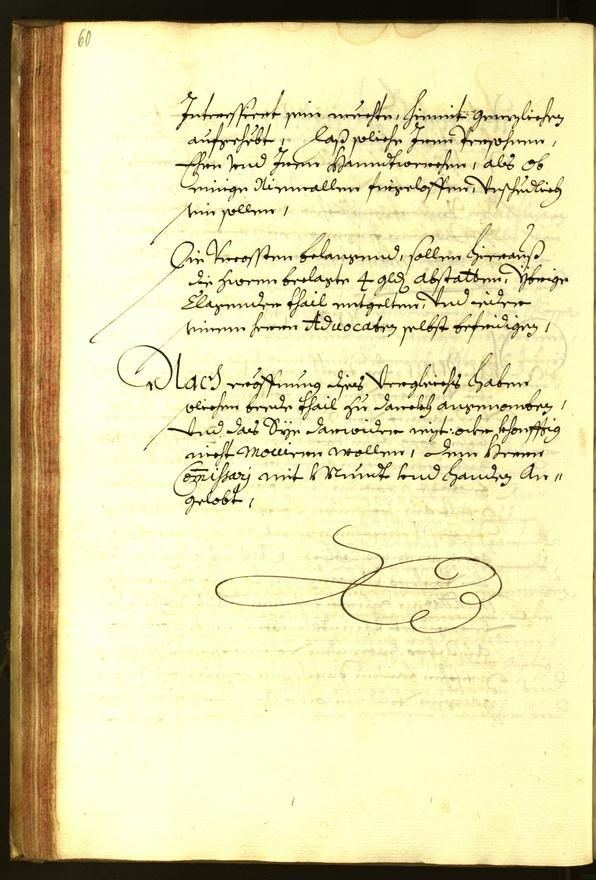 60
Interessiert sein mechte, hiemit genzlichen
aufgehebt, daß solliche Inen Irer Persohnen,
Ehrn und Irem Hanndtwerchen, als ob
einige Niemallen fürgeloffen, Unschedlich
sein sollen,
Die Uncossten belangend, sollen hierauß
die herrn beclagte 4 gld. abstatten, Übrige
Clagenden thail entgelten, Und ieder
seinen herrn Advocaten selbst befridigen,
Nach eröffnung dises Vergleichs haben
solichen beede thail zu danckh angenomben,
Und das Sye darwider nit: oder khonfftig
nicht Movieren wollen, dem Herrn
Comissarj mit Mundt und handen An-
gelobt,